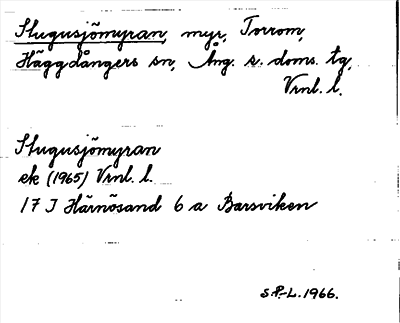 Stugusjömyran, myr, Torrom,
Häggdångers sn, Ång. s. doms. tg,
Vrnl. l.
Stugusjömyran
ek (1965) Vrnl. l.
17 I Härnösand 6 a Barsviken
S.P.-L. 1966.